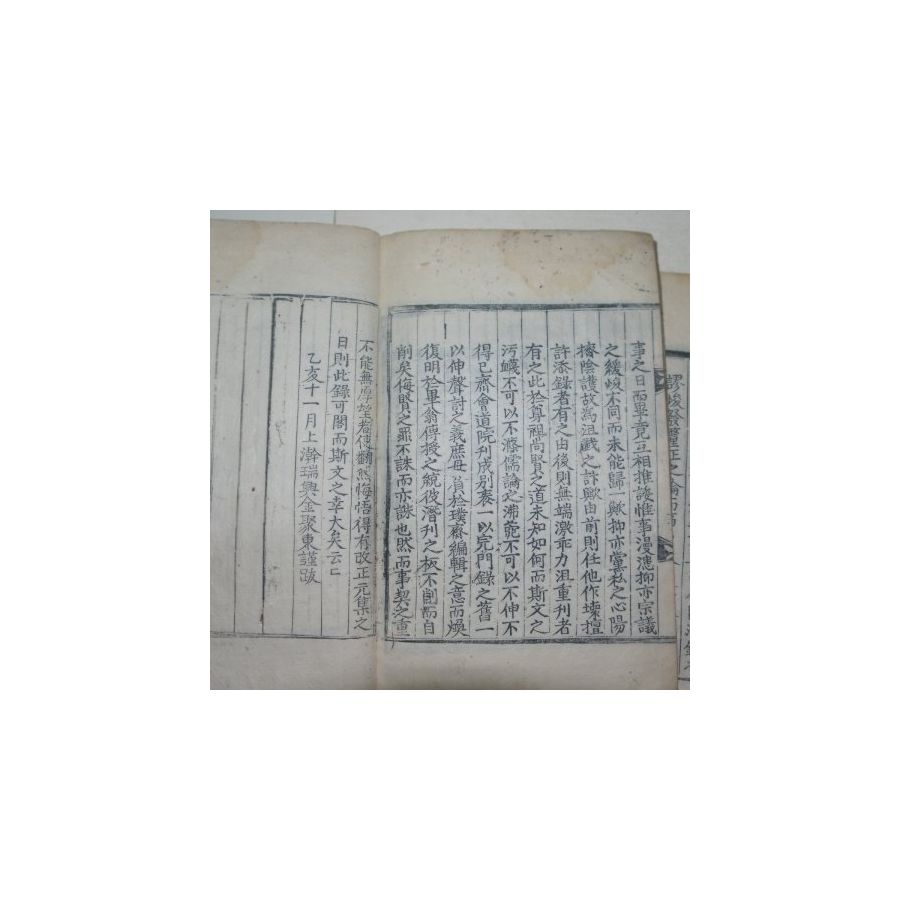 事之日而畢竟互相推諉惟事漫漶抑亦宗議
之緩峻不同而未能歸一歟抑亦黨私之心陽
擠陰護故爲沮戱之計歟由前則任他作壞壇
許添錄者有之由後則無端激乖力沮重刊者
有之此於尊祖尚賢之道未知如何而斯文之
汚衊不可以不滌儒論之沸鬱不可以不伸不
得已齋會道院刋成別袠一以完門錄之舊一
以伸聲討之義庶毋負於璞齋編輯之意而煥
復明於畢翁傳授之統彼潛刊之板不削而自
削矣侮賢之罪不誅而亦誅也然而事契之重
不能無厚望者使飜然悔悟得有改正元集之
日則此錄可閣而斯文之幸大矣云尔
乙亥十一月上澣瑞興金聚東謹跋